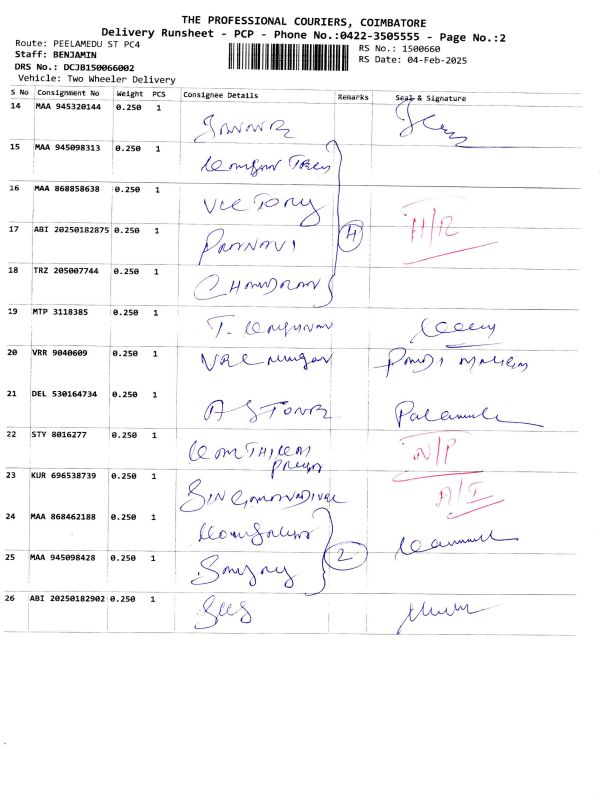 THE PROFESSIONAL COURIERS, COIMBATORE
Delivery Runsheet - PCP - Phone No.:0422-3505555 - Page No.:2
Route: PEELAMEDU ST PC4
Staff: BENJAMIN
DRS No.: DCJB150066002
Vehicle: Two Wheeler Delivery
RS No.: 1500660
RS Date: 04-Feb-2025
S No Consignment No Weight PCS Consignee Details Remarks Seal & Signature
14 MAA 945320144 0.250 1
15 MAA 945098313 0.250 1
16 MAA 868858638 0.250 1 VICTORY H/R
17 ABI 20250182875 0.250 1 PRANAVI 4
18 TRZ 205007744 0.250 1 CHANDRAN
19 MTP 3118385 0.250 1
20 VRR 9040609 0.250 1
21 DEL 530164734 0.250 1 A STONR
22 STY 8016277 0.250 1 N/P
23 KUR 696538739 0.250 1 A/I
24 MAA 868462188 0.250 1
25 MAA 945098428 0.250 1 Sanjay 2
26 ABI 20250182902 0.250 1